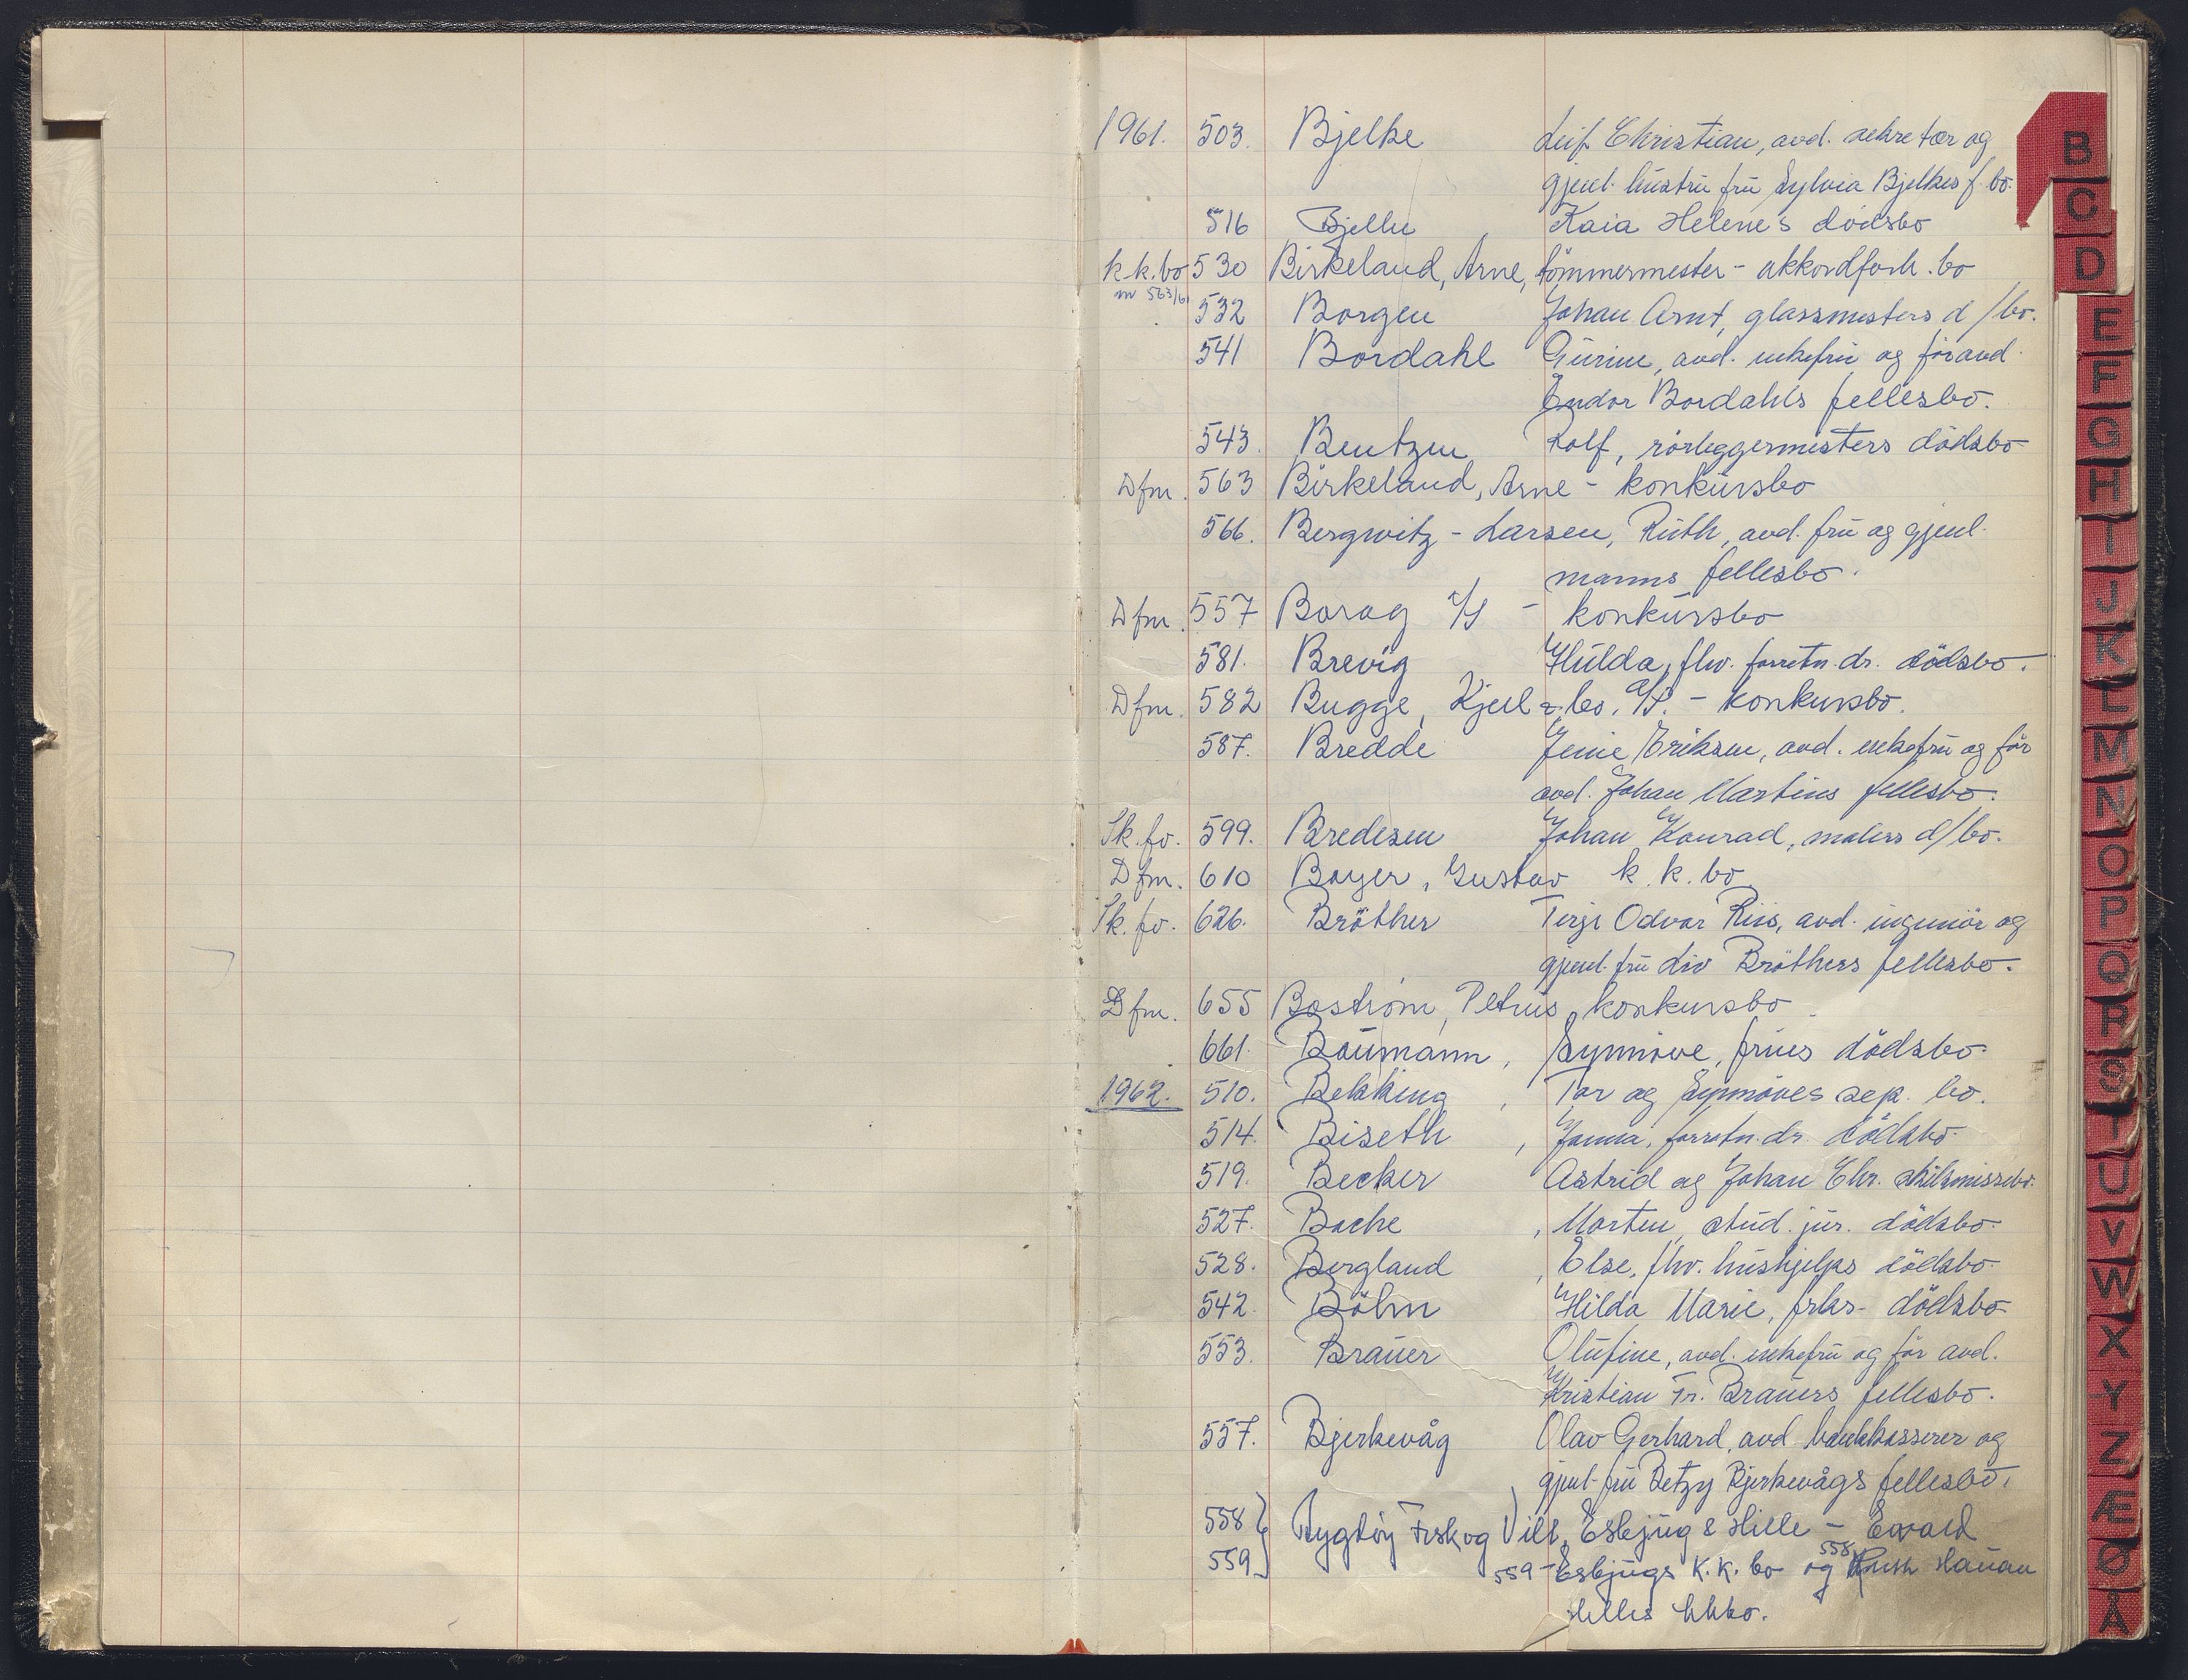 1961. 503. Bjelke Leif Christian, avd. sekretær og
gjenl. hustru fru Sylvia Bjelkes f. bo.
516 Bjelke, Kaia Helene's dødsbo
k.k.bo 530 Birkeland, Arne, tömmermester - akkordforh. bo
nr 563/61
532 Borgen Johan Arnt, glassmesters d/bo.
541 Bordahl Gurine, avd. enkefru og för avd.
Endor Bordahls fellesbo.
543. Bentzen Rolf, rörleggermesters dödsbo
Dfm. 563 Birkeland, Arne - konkursbo
566. Bergwitz-Larsen, Ruth, avd. fru og gjenl.
manns fellesbo.
Dfm. 557 Borag A/S - konkursbo
581. Brevig Hulda, fhv. forretn.dr. dödsbo.
Dfm. 582 Bugge, Kjell & Co. A/S. - konkursbo.
587. Bredde Jenie Eriksen, avd. enkefru og för
avd. Johan Martins fellesbo.
Sk.fv. 599. Bredesen Johan Konrad, malers d/bo.
Dfm. 610 Boyer, Gustav k.k.bo
Sk.fv. 626. Bröther Terje Odvar Riis, avd. ingeniör og
gjenl. fru Liv Bröthers fellesbo.
Dfm. 655 Boström, Petrus, konkursbo.
661. Baumann, Synnöve, frues dödsbo.
1962. 510. Bekking, Tor og Synnöves sep. bo.
514. Biseth, Janna, forretn.dr. dödsbo.
519. Becker Astrid og Johan Chr. skilsmissebo.
527. Bache, Morten, stud. jur. dödsbo.
528. Bergland, Else, fhv. hushjelps dödsbo
542. Böhm Hilda Marie, frks- dödsbo
553. Brauer Olufine, avd. enkefru og för avd.
Kristian Fr. Brauers fellesbo.
557. Bjerkevåg Olav Gerhard, avd bankkasserer og
gjenl. fru Betzy Bjerkevågs fellesbo.
558 } Bygdöy Fisk og Vilt, Esbjug & Hille - Ewald
559 } 559 - Esbjugs K.K. bo og 558 Ruth Hauan
Hilles kkbo.
B
C
D
E
F
G
H
I
J
K
L
M
N
O
P
Q
R
S
T
U
V
W
X
Y
Z
Æ
Ø
Å